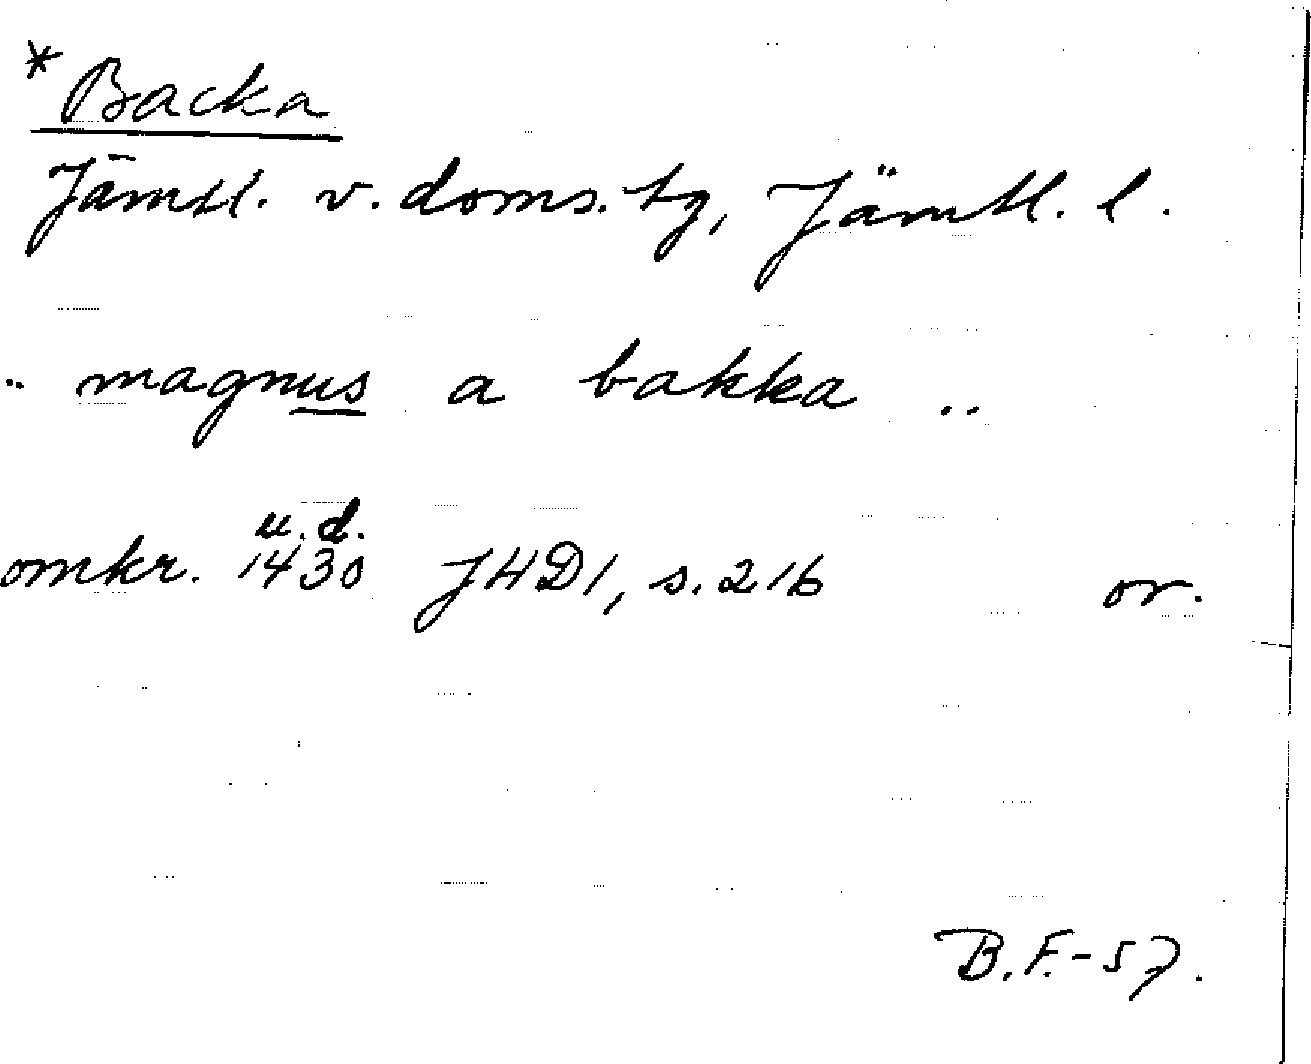 *Backa
Jämtl. v. doms. tg, Jämtl. l.
.. magnus a bakka ..
u.d.
omkr. 1430 JHD1, s. 216 or.
B.F.-57.